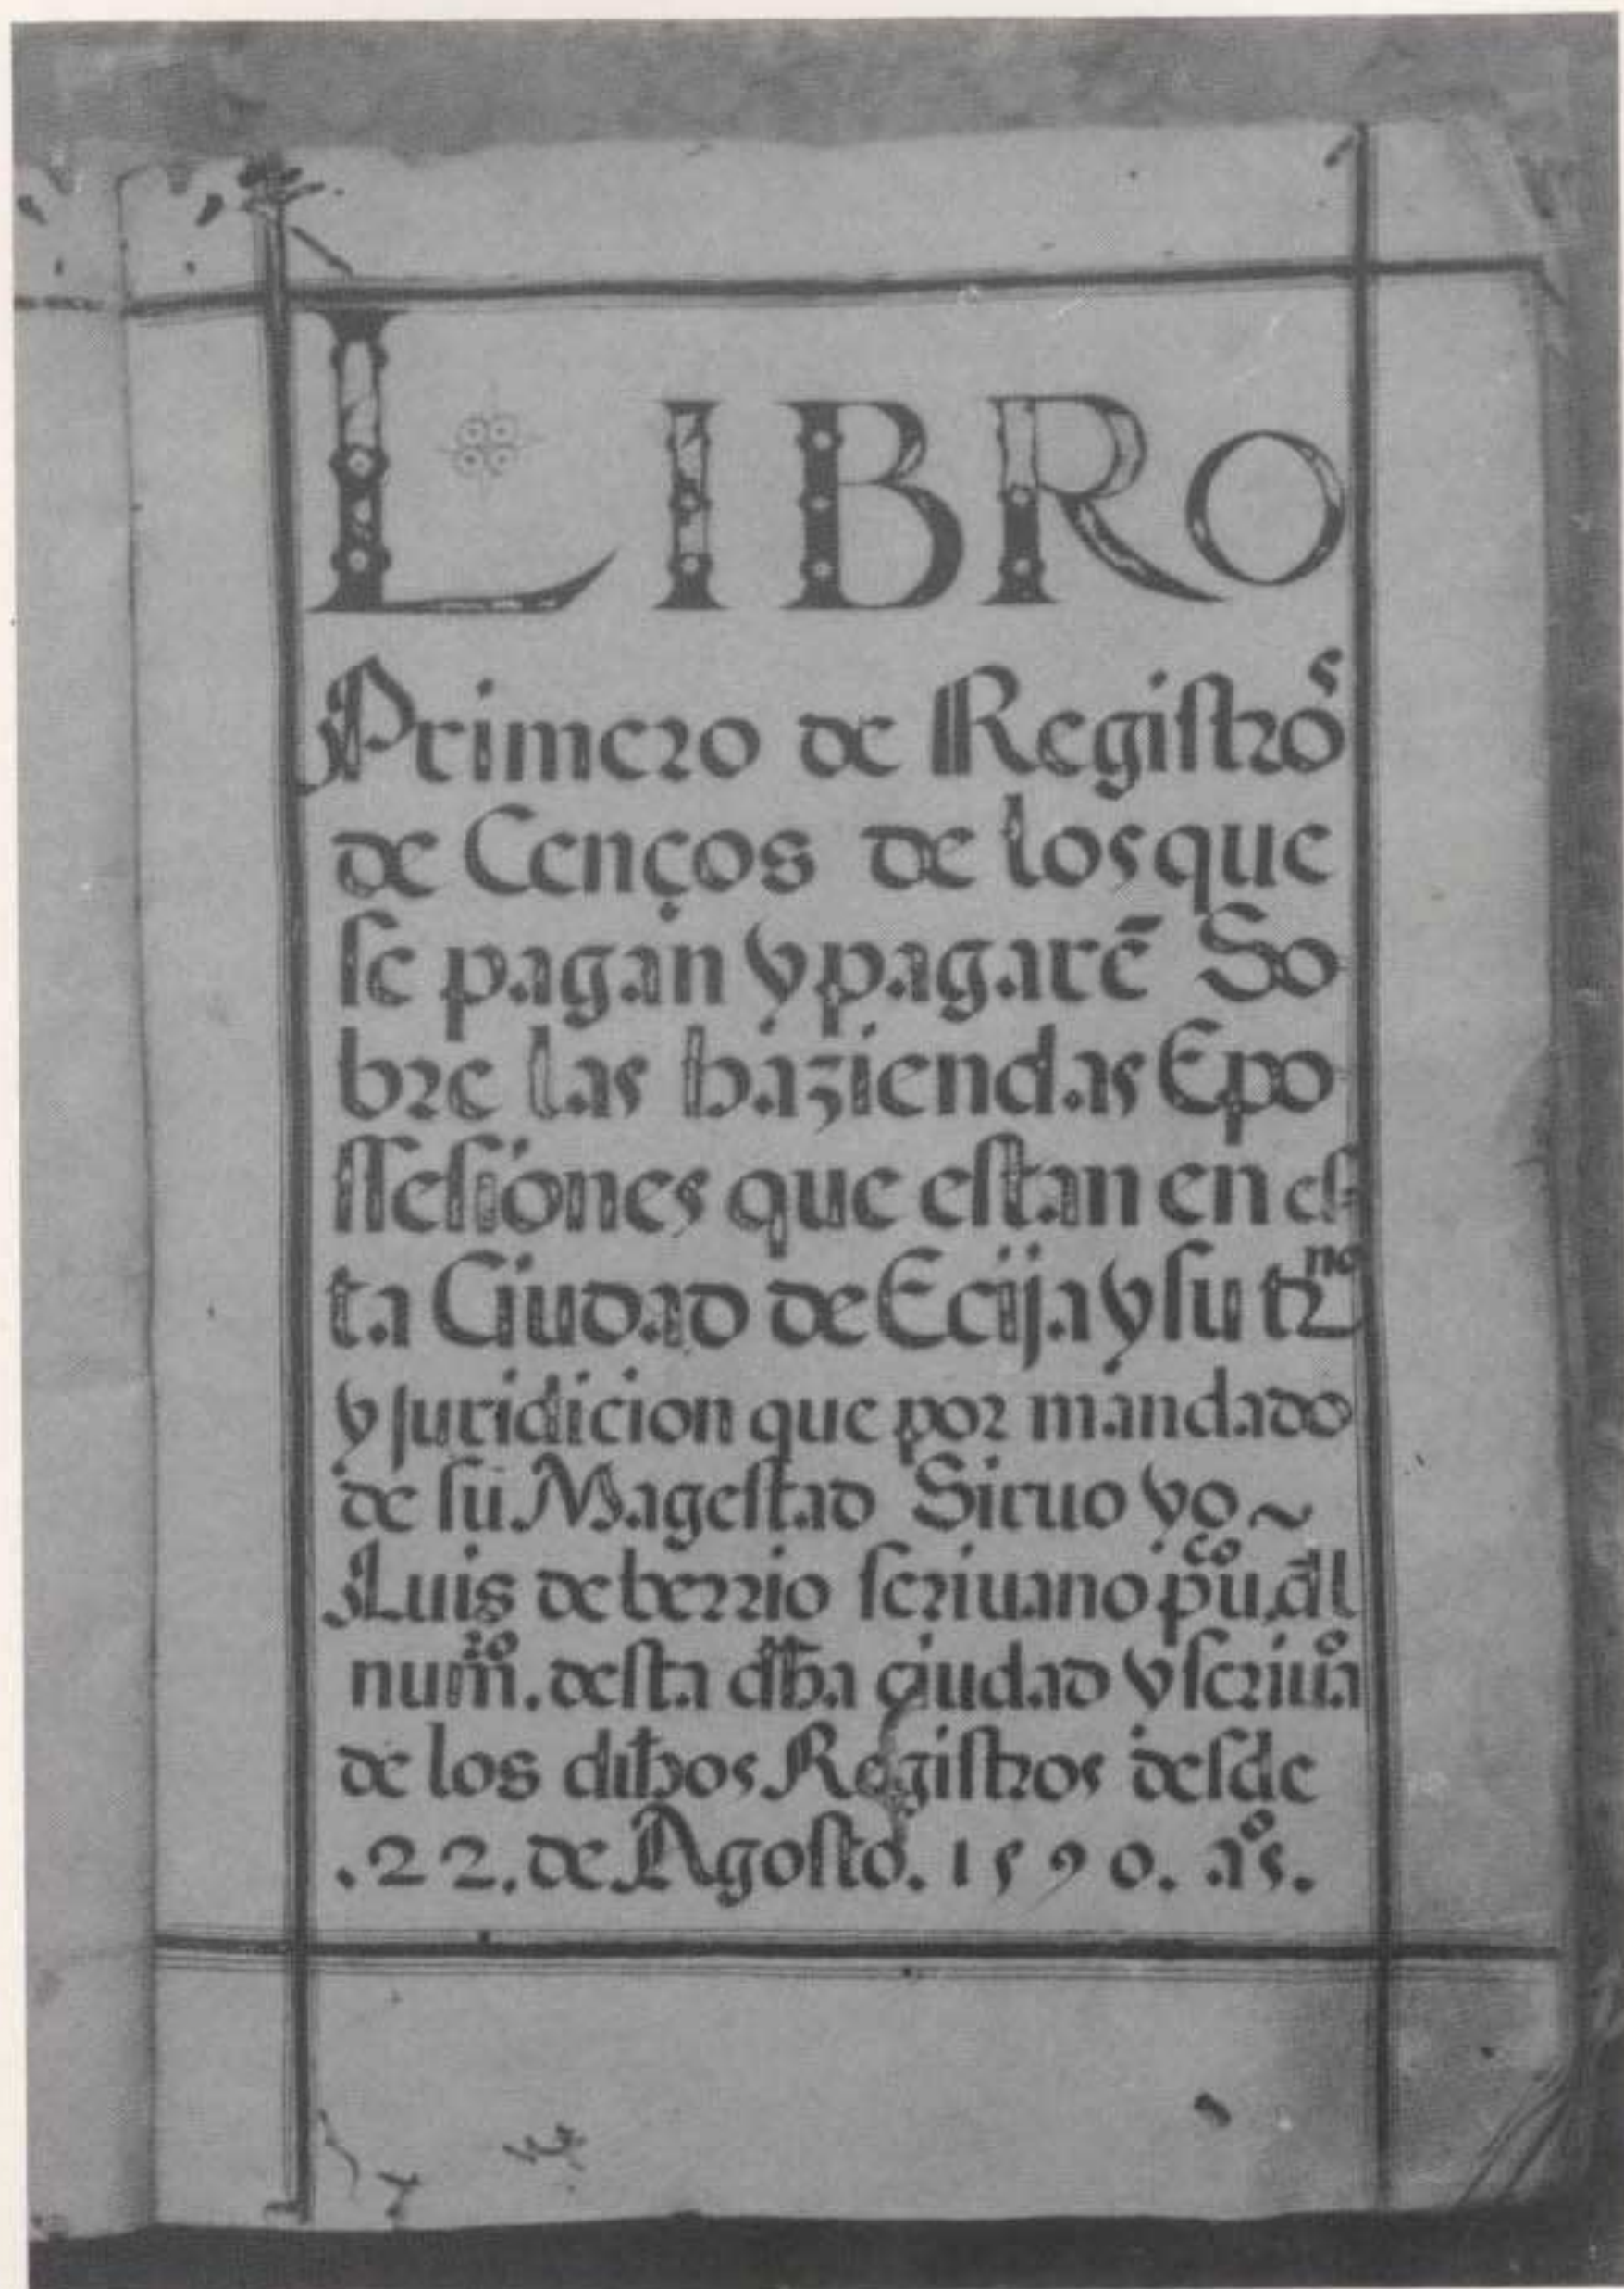 LIBRO
Primero de Registros
de Cenços de los que
se pagan y pagarē So
bre las haziendas E po
ssesiones que estan en es-
ta Ciudad de Ecija y su tr̄no
y juridicion que por mandado
de su Magestad Siruo yo ~
Luis de berrio scriuano pu.co dl
num.ro desta dha çiudad y scriu.o
de los dichos Registros desde
.22. de Agosto. 1590. aos.